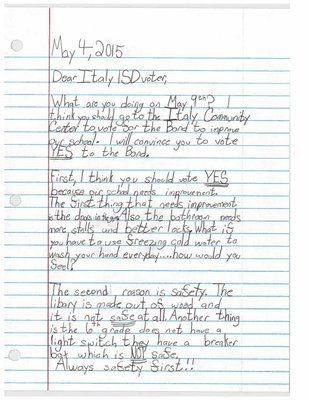 May 4, 2015
Dear Italy ISD voter,
What are you doing on May 9th? I
think you should go to the Italy Community
Center to vote for the Bond to improve
our school. I will convince you to vote
YES to the Bond.
First, I think you should vote YES
because our school needs improvement.
The first thing that needs improvement
is the doors in the gym. Also the bathroom needs
more stalls and better locks. What if
you have to use freezing cold water to
wash your hand everyday....how would you
feel?
The second reason is safety. The
libary is made out of wood, and
it is not safe at all. Another thing
is the 6th grade does not have a
light spitch they have a breaker
box which is NOT safe.
Always safety first!!